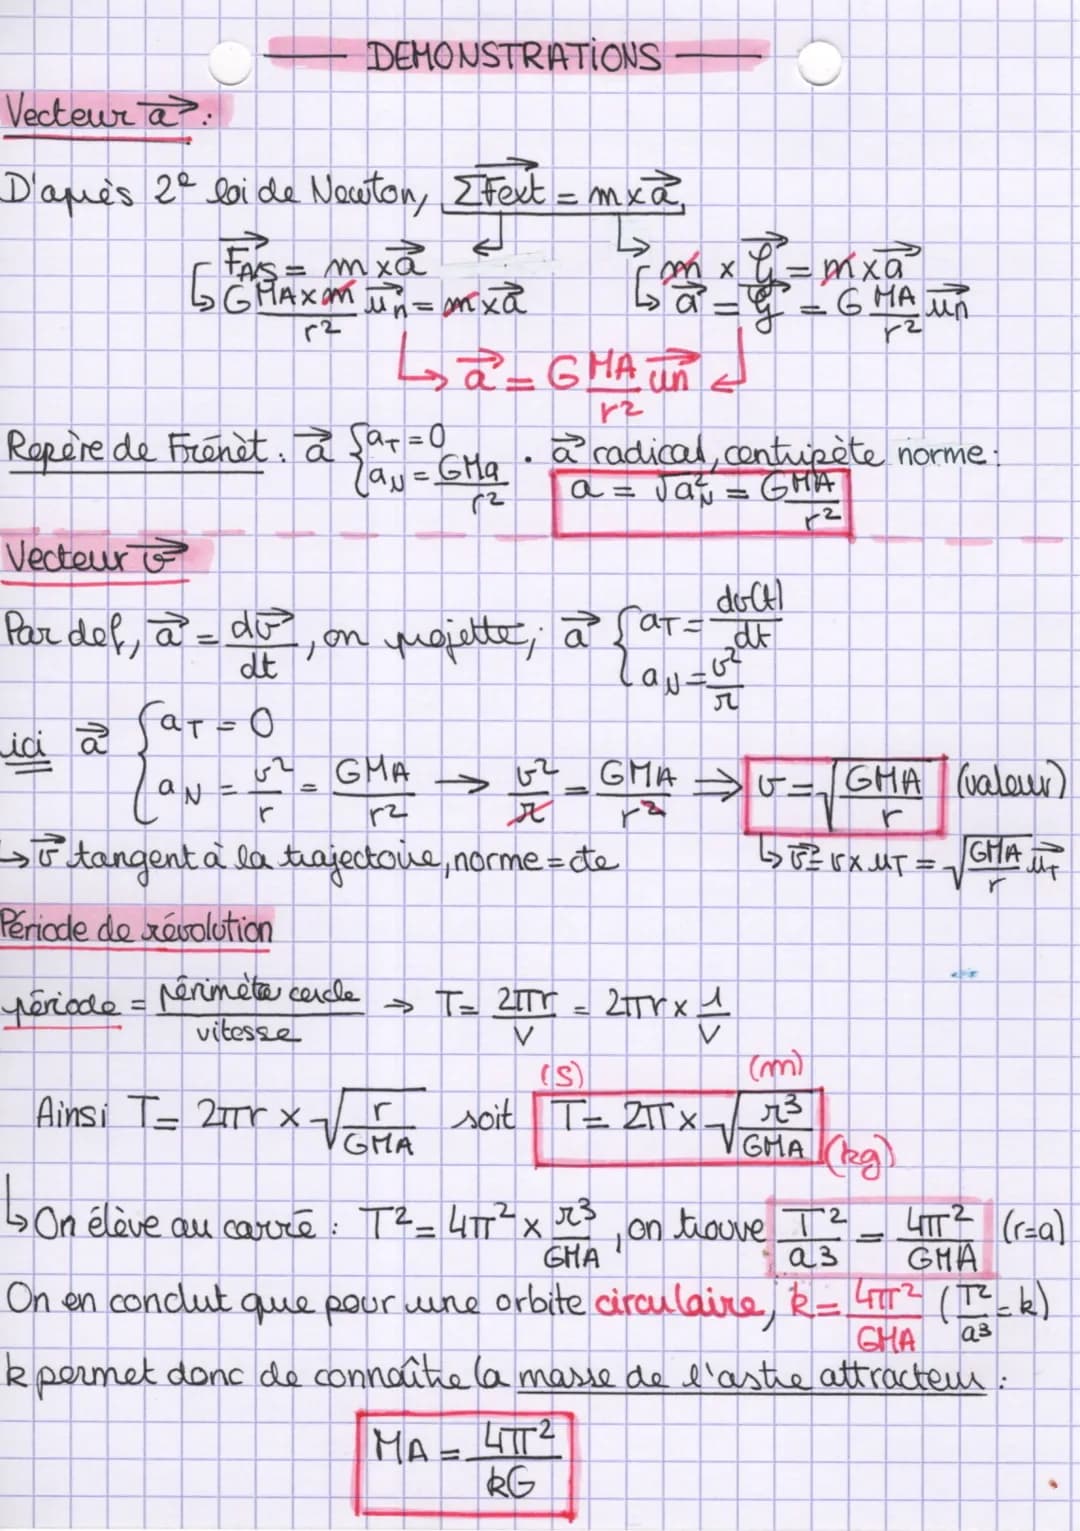 DEMONSTRATIONS
Vecteur a⃗ :
D'après 2e loi de Newton, ΣF⃗ext = m x a⃗
F⃗A/S = m x a⃗
m x G⃗ = m x a⃗
↳ G MA x m / r² u⃗n = m x a⃗
↳ a⃗ = G⃗ = G MA / r² u⃗n
↳ a⃗ = G MA / r² u⃗n
Repère de Frênet : a⃗ { aT = 0 ; aN = GMa / r² . a⃗ radical, centripète norme :
a = √aN² = GMA / r²
Vecteur v⃗
Par def, a⃗ = dv⃗ / dt, on projette, a⃗ { aT = dv(t) / dt ; aN = v² / r
ici a⃗ { aT = 0 ; aN = v² / r = GMA / r² → v² / r = GMA / r² ⇒ v = √(GMA / r) (valeur)
↳ v⃗ tangent à la trajectoire, norme = cte
↳ v⃗ = v x uT = √(GMA / r) u⃗T
Période de révolution
période = périmètre cercle / vitesse → T = 2πr / V = 2πr x 1 / V
(s) (m)
Ainsi T = 2πr x √(r / GMA) soit T = 2π x √(r³ / GMA) (kg)
↳ On élève au carré : T² = 4π² x r³ / GMA, on trouve T² / a3 = 4π² / GMA (r=a)
On en conclut que pour une orbite circulaire, k = 4π² / GMA (T² / a³ = k)
k permet donc de connaître la masse de l'astre attracteur :
MA = 4π² / kG